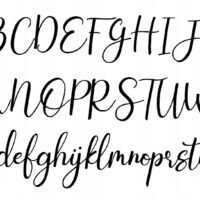 BCDEFGHIJ
NOPRSTUW
defghijklmnoprst